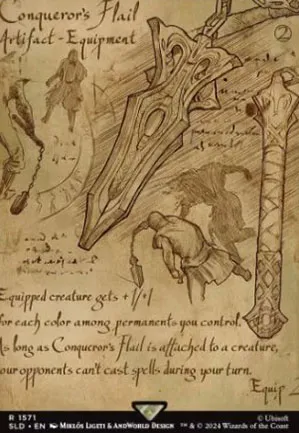 Conqueror's Flail
2
Artifact - Equipment
Equipped creature gets +1/+1
for each color among permanents you control.
As long as Conqueror's Flail is attached to a creature,
your opponents can't cast spells during your turn.
Equip 2
R 1571
© Ubisoft
SLD • EN Miklós Ligeti & AndWorld Design
™ & © 2024 Wizards of the Coast